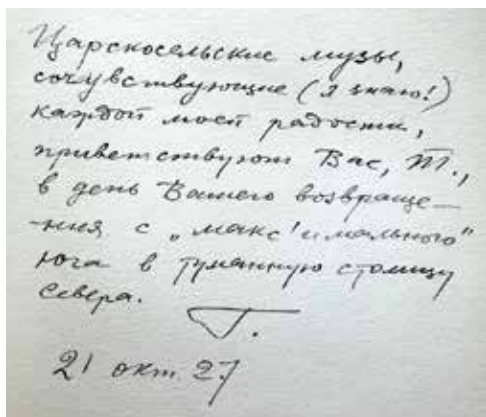 Царскосельские музы,
сочувствующие (я знаю!)
каждой моей радости,
приветствуют Вас, Т.,
в день Вашего возвраще-
-ния с „макс'имального"
юга в туманную столицу
севера.
Г.
21 окт. 27